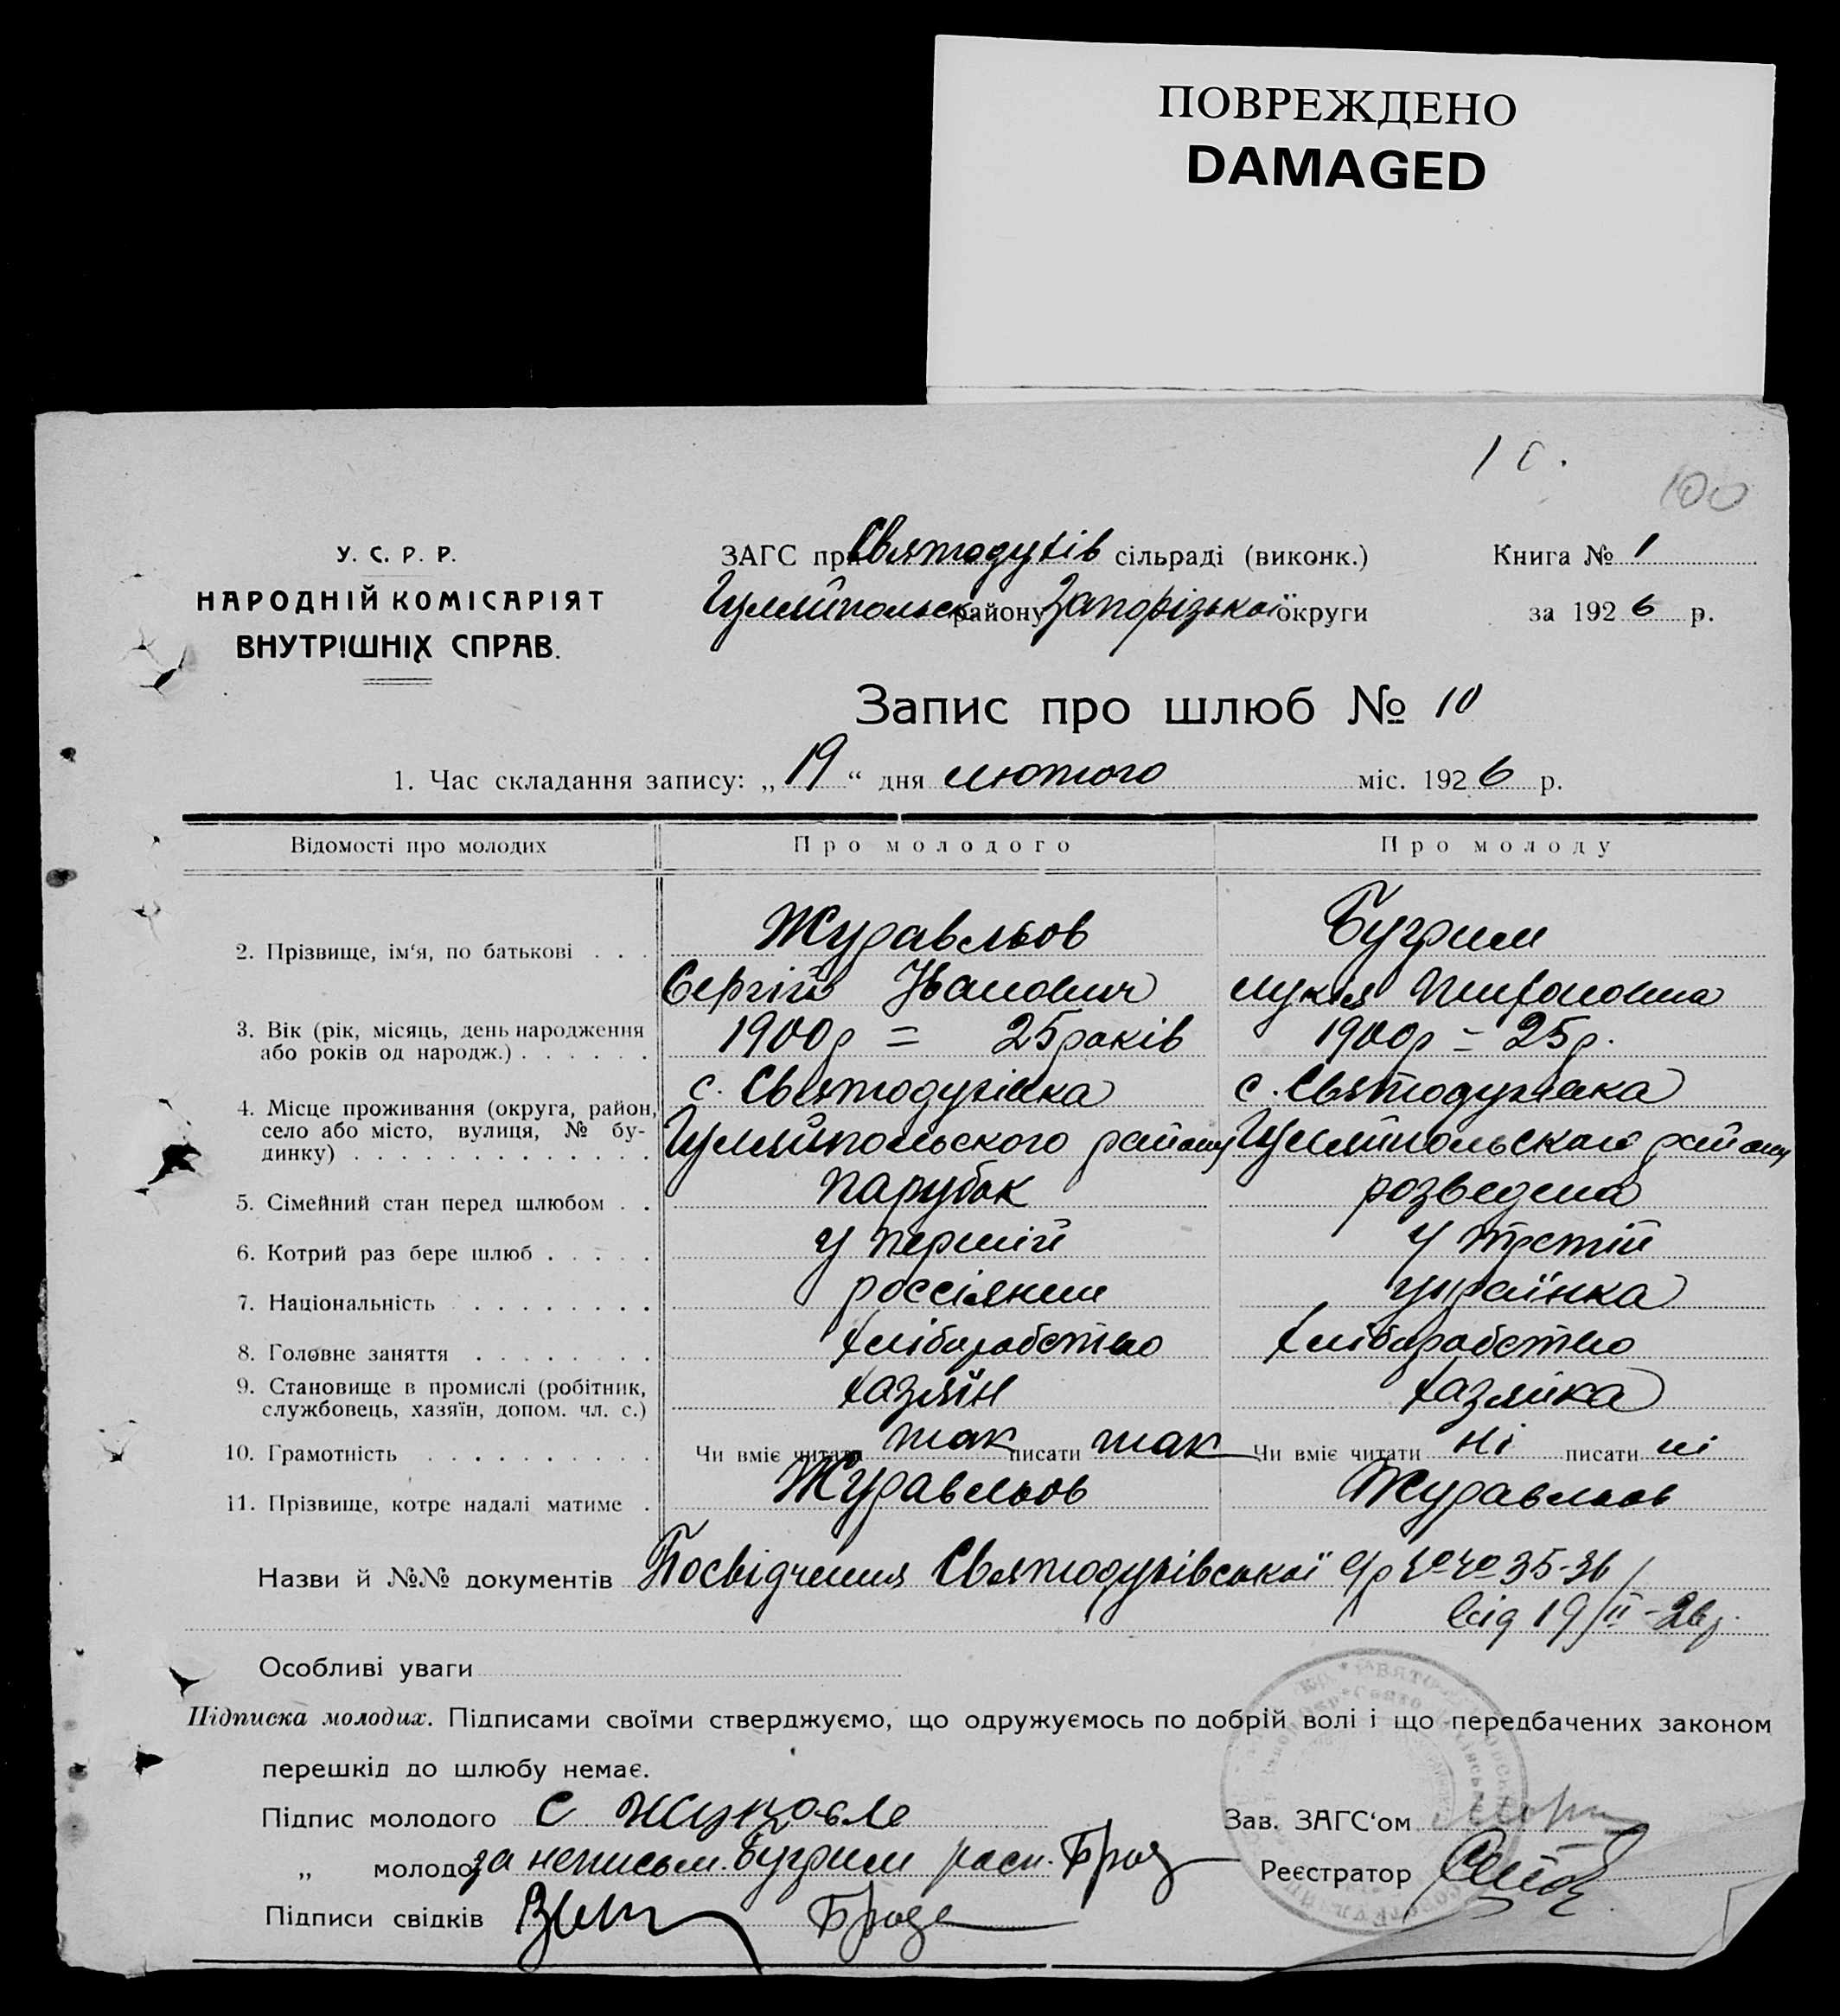 ПОВРЕЖДЕНО
DAMAGED
100
У. С. Р. Р.
НАРОДНІЙ КОМІСАРІЯТ
ВНУТРІШНІХ СПРАВ.
ЗАГС при Святодухів сільраді (виконк.)
Гуляйпольськ району Запорізької округи
Книга № 1
за 1926 р.
Запис про шлюб № 10
1. Час складання запису: „19“ дня лютого міс. 1926 р.
Відомості про молодих Про молодого Про молоду
2. Прізвище, ім'я, по батькові . . . Журавльов Бугрим
Сергій Іванович Лукія
3. Вік (рік, місяць, день народження або років од народж.) . . . . . . 1900р = 25 років 1900р = 25р.
4. Місце проживання (округа, район, село або місто, вулиця, № будинку) . . . . . . . . . . . . . с. Святодухівка с. Святодухівка
Гуляйпольского району Гуляйпольского району
5. Сімейний стан перед шлюбом . . парубок розведена
6. Котрий раз бере шлюб . . . . . у перший у третій
7. Національність . . . . . . . . россіянин українка
8. Головне заняття . . . . . . . . хліборобство хліборобство
9. Становище в промислі (робітник, службовець, хазяїн, допом. чл. с.) хазяїн хазяйка
10. Грамотність . . . . . . . . . . Чи вміє читати так писати так Чи вміє читати ні писати ні
11. Прізвище, котре надалі матиме . Журавльов Журавльов
Назви й №№ документів Посвідчення Святодухівської с/р №№ 35-36
від 19/II-26р.
Особливі уваги
Підписка молодих. Підписами своїми стверджуємо, що одружуємось по добрій волі і що передбачених законом
перешкід до шлюбу немає.
Підпис молодого С Журавле
Зав. ЗАГС'ом
„ молодої за неписьм. Бугрим расп.
Реєстратор
Підписи свідків